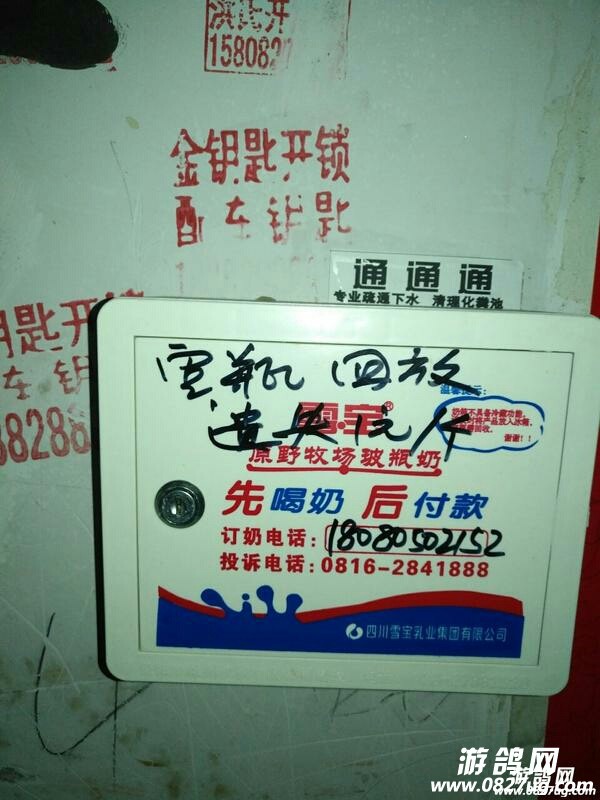 15808
金钥匙开锁
配车钥匙
通通通
专业疏通下水 清理化粪池
钥匙开
车钥
08286
空瓶回放
遗失
雪宝®
温馨提示:
奶箱不具备冷藏功能,
谢谢!!
原野牧场玻瓶奶
先喝奶 后付款
订奶电话:18080502152
投诉电话:0816-2841888
四川雪宝乳业集团有限公司
游鸽网
www.0827sg.com